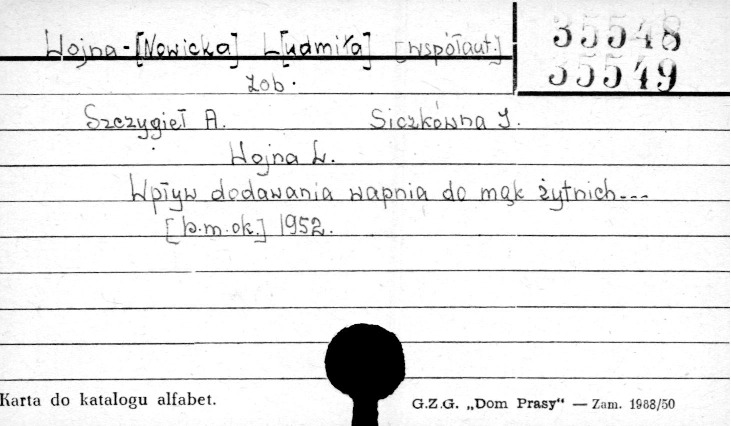 Wojna-[Nowicka] L[udmiła] [współaut.]
35548
35549
zob.
Szczygieł A. Siczkówna J.
Wojna L.
Wpływ dodawania wapnia do mąk żytnich---
[b.m.ok.] 1952.
Karta do katalogu alfabet.
G.Z.G. „Dom Prasy“ — Zam. 1988/50